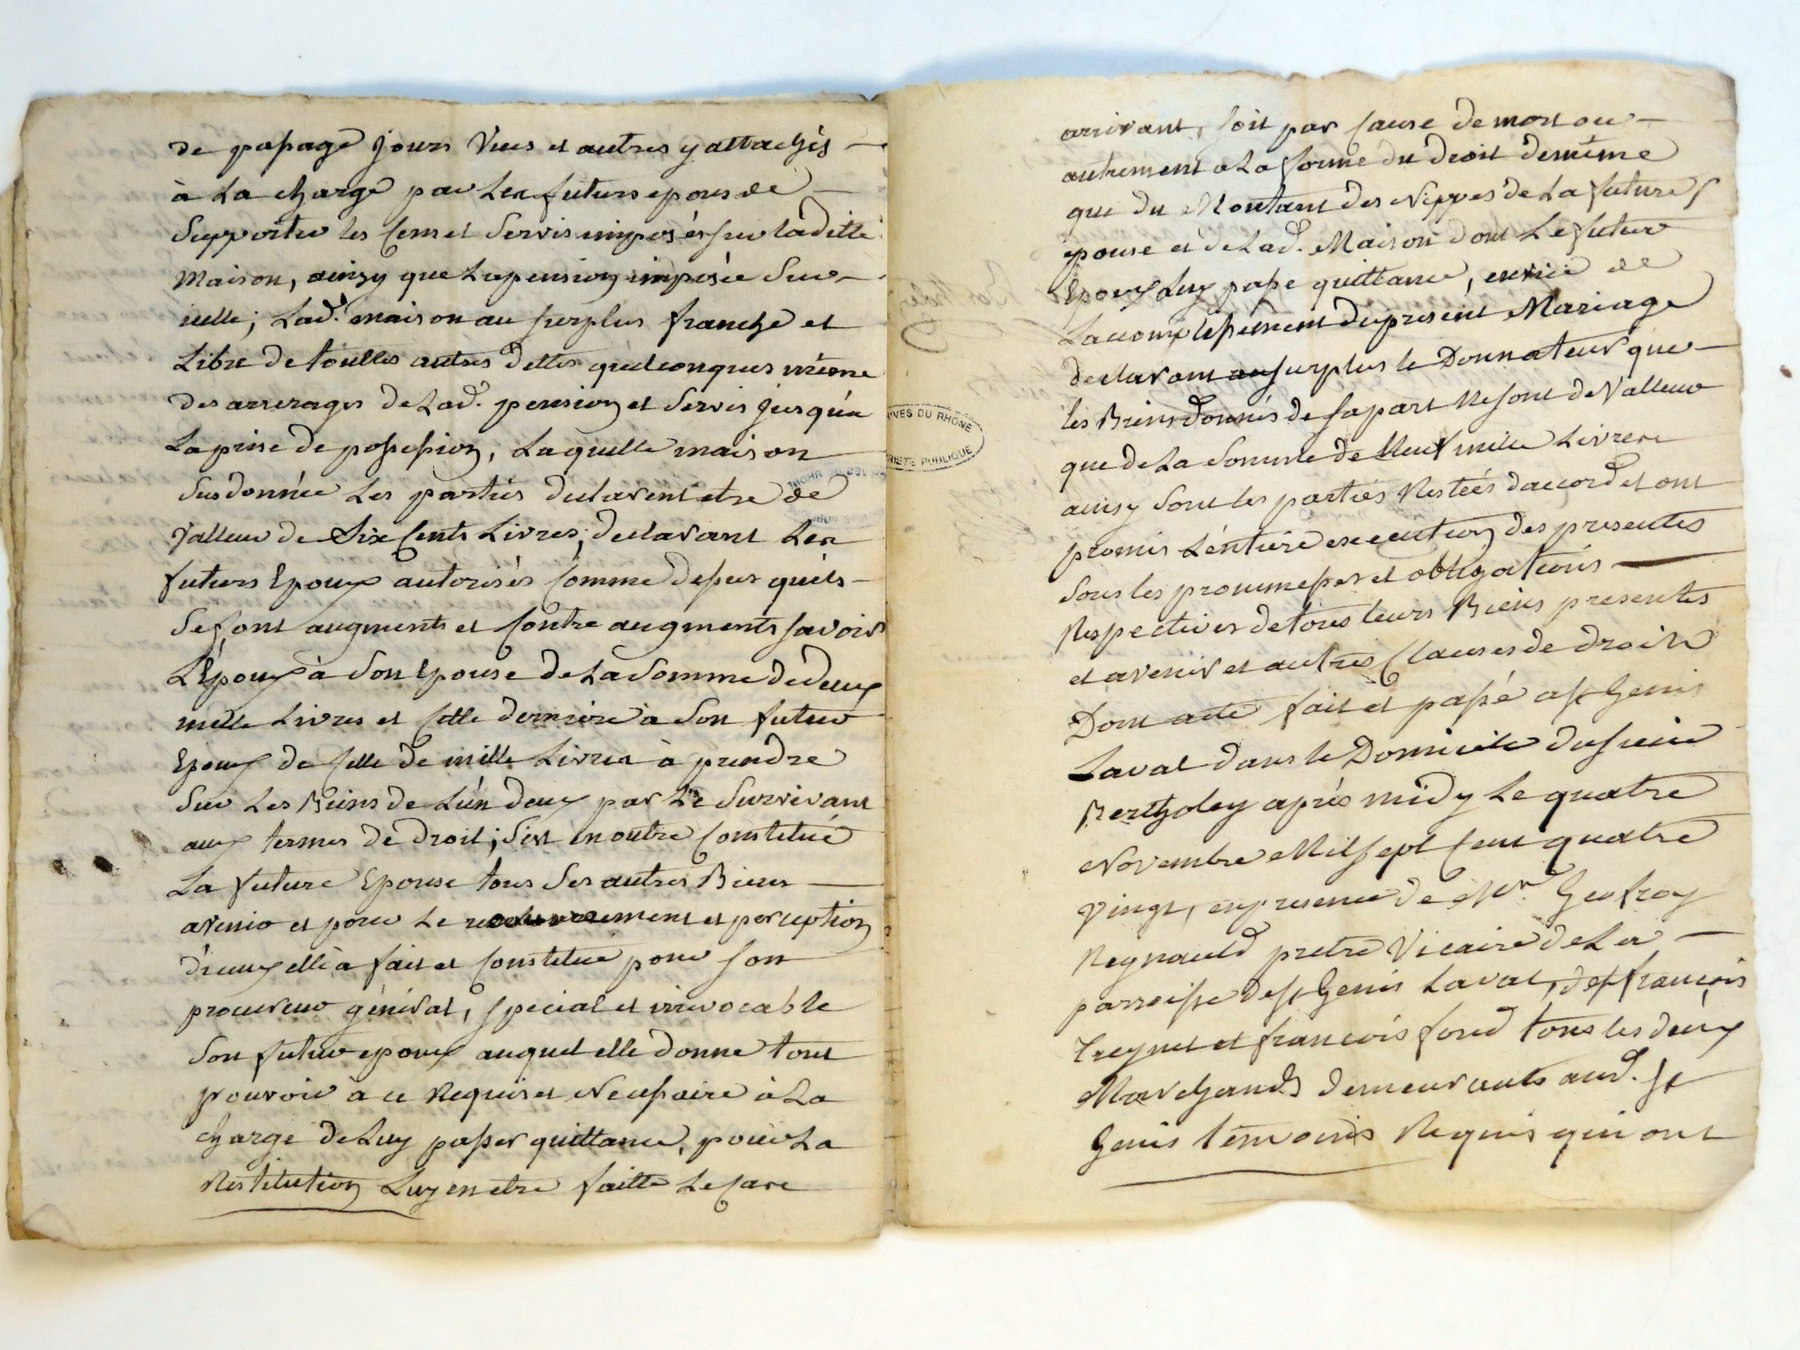 de passage jours Vues et autres y attachés
à La charge par Les futurs epous de
Supporter les Cens et Servis imposés sur la ditte
Maison, ainsy que La pension imposée Sur
icelle; Lad. maison au surplus franche et
Libre de touttes autres dettes quelconques même
des arrerages de Lad. pension et Servis jusqu'a
La prise de possession, Laquelle maison
Susdonnée Les parties declarent etre de
Valleur de Six Cents Livres; declarant Les
futurs Epoux autorisés Comme dessus quels
Se font augments et Contre augments savoir
L'Epoux à Son Epouse de La Somme de deux
mille Livres et Cette derniere à Son futur
Epoux de Celle de mille Livres à prendre
Sur Les Biens de L'un deux par Le Survivant
aux termes de droit; S'est en outre Constitué
La future Epouse tous Ses autres Biens
avenir et pour Le recouvrement et perception
d'iceux elle à fait et Constitué pour son
procureur général, special et irrevocable
Son futur epoux auquel elle donne tout
pouvoir a ce Requis et Necessaire à La
charge de Luy passer quittance, pour La
Restitution Luy en etre faitte Le Cas
arrivant, soit par Cause de mort ou
autrement a La forme du droit de même
que du Montant des Nippes de La future
epouse et de Lad. Maison dont Le futur
Epoux Luy passe quittance,
L'accomplissement du present Mariage
declarant au surplus le Donnateur que
les Biens donnés de sa part Ne sont de Valleur
que de La Somme de Neuf mille Livres
ainsy Sont les parties Restées d'accord et ont
promis L'entiere execution des presentes
Sous les proummesses et obligations
Respectives de tous leurs Biens presentes
et avenir et autres Clauses de droit
Dont acte fait et passé a St Genis
Laval dans le Domicile du sieur
Bertholey après midy Le quatre
Novembre Mil sept Cent quatre
Vingt, en presence de Mr. Geofroy
Reynauld pretre Vicaire de La
parroisse de St Genis Laval, de Sr françois
et françois fond tous les deux
Marchands demeurants aud. St
Genis témoins Requis qui ont
ARCHIVES DU RHÔNE
PROPRIÉTÉ PUBLIQUE